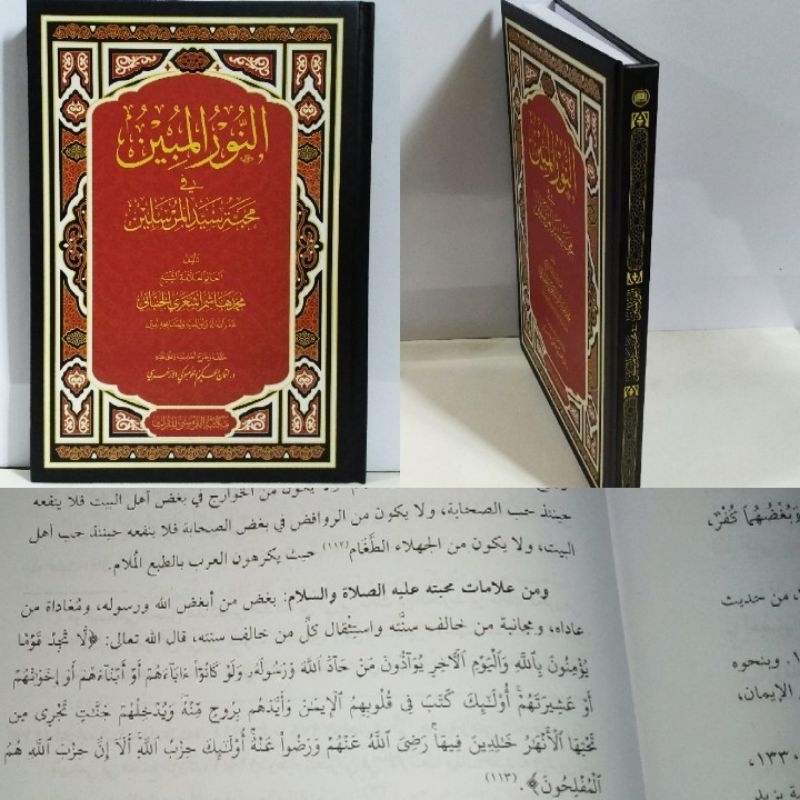 النُّورُ المُبِينُ
في
محبة سيد المرسلين
تأليف
العالم العلامة الشيخ
محمد هاشم أشعري الجنباني
مكتبة
النور المبين
حينئذ حب الصحابة، ولا يكون من الروافض في بغض الصحابة فلا ينفعه حينئذ حب أهل
البيت، ولا يكون من الجهلاء الطَّغَام(١١٢) حيث يكرهون العرب بالطبع المُلام.
ومن علامات محبته عليه الصلاة والسلام: بغض من أبغض الله ورسوله، ومُعَاداة من
عاداه، ومجانبة من خالف سنَّته واستِثْقال كلِّ من خالف سنته، قال الله تعالى: ﴿لَّا تَجِدُ قَوْمًا
يُؤْمِنُونَ بِٱللَّهِ وَٱلْيَوْمِ ٱلْآخِرِ يُوَآدُّونَ مَنْ حَآدَّ ٱللَّهَ وَرَسُولَهُۥ وَلَوْ كَانُوٓا۟ ءَابَآءَهُمْ أَوْ أَبْنَآءَهُمْ أَوْ إِخْوَٰنَهُمْ
أَوْ عَشِيرَتَهُمْ أُو۟لَٰٓئِكَ كَتَبَ فِى قُلُوبِهِمُ ٱلْإِيمَٰنَ وَأَيَّدَهُم بِرُوحٍ مِّنْهُ وَيُدْخِلُهُمْ جَنَّٰتٍ تَجْرِى مِن
تَحْتِهَا ٱلْأَنْهَٰرُ خَٰلِدِينَ فِيهَا رَضِىَ ٱللَّهُ عَنْهُمْ وَرَضُوا۟ عَنْهُ أُو۟لَٰٓئِكَ حِزْبُ ٱللَّهِ أَلَآ إِنَّ حِزْبَ ٱللَّهِ هُمُ
ٱلْمُفْلِحُونَ﴾(١١٣).
وَبُغْضُهُمَا كُفْرٌ،
، من حديث
١. وبنحوه
الإيمان،
١٣٣٠،
ة يزيد